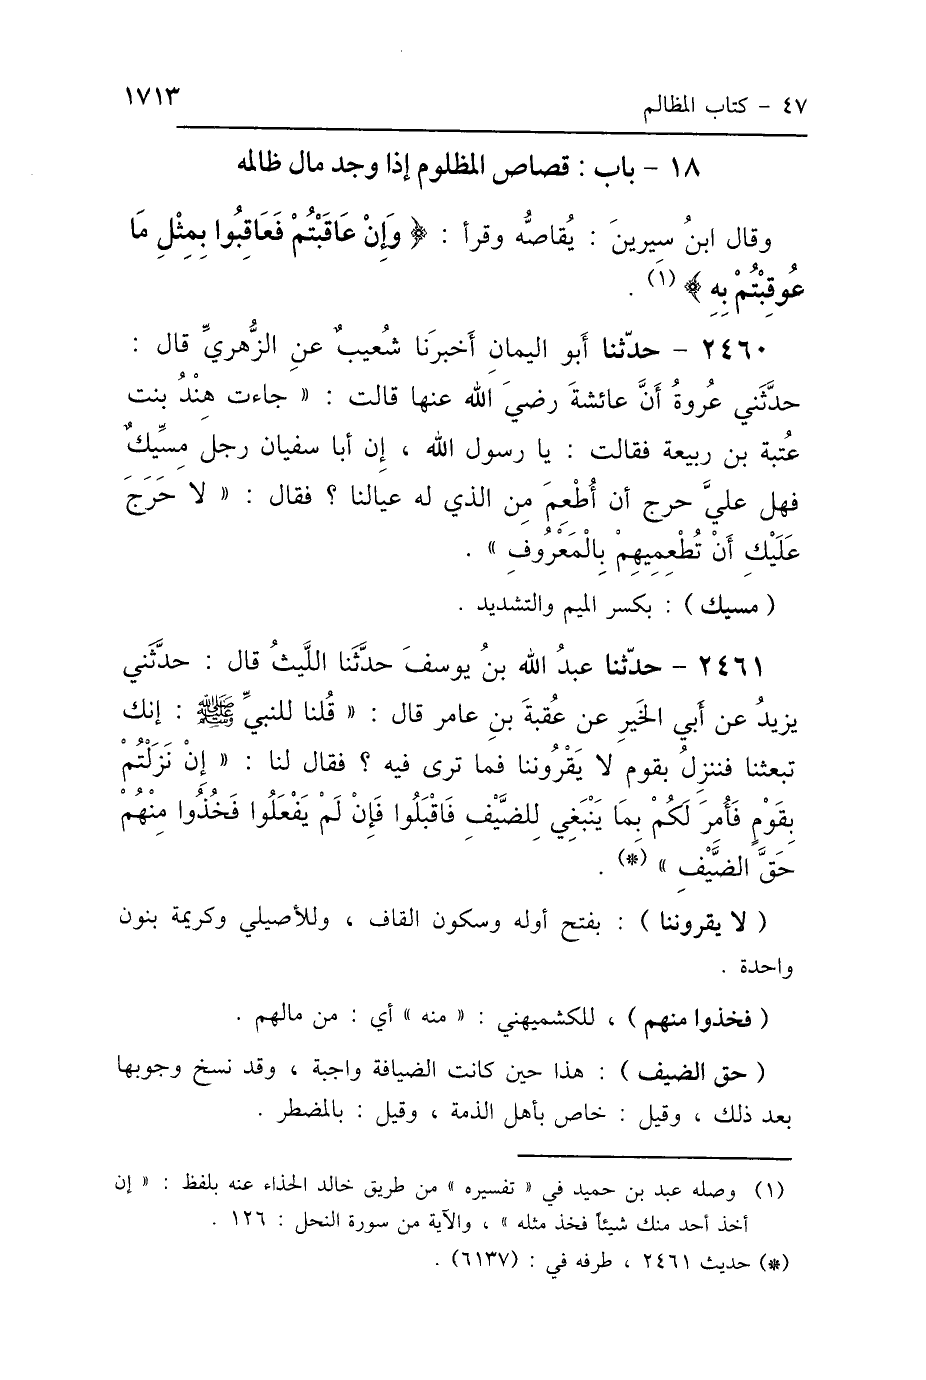 ٤٧ - كتاب المظالم ١٧١٣
١٨ - باب : قصاص المظلوم إذا وجد مال ظالمه
وقال ابنُ سيرينَ : يُقاصُّه وقرأ : ﴿ وَإِنْ عَاقَبْتُمْ فَعَاقِبُوا بِمِثْلِ مَا
عُوقِبْتُمْ بِهِ ﴾ (١) .
٢٤٦٠ - حدّثنا أبو اليمانِ أخبرَنا شُعيبٌ عنِ الزُّهريِّ قال :
حدَّثَني عُروةُ أنَّ عائشةَ رضيَ الله عنها قالت : « جاءت هِنْدُ بنت
عُتبة بن ربيعة فقالت : يا رسول الله ، إن أبا سفيان رجل مِسِّيكٌ
فهل عليَّ حرج أن أُطْعِمَ مِن الذي له عيالنا ؟ فقال : « لا حَرَجَ
عَلَيْكِ أَنْ تُطْعِمِيهِمْ بِالْمَعْرُوفِ » .
( مسيك ) : بكسر الميم والتشديد .
٢٤٦١ - حدّثنا عبدُ الله بنُ يوسفَ حدَّثَنا اللَّيثُ قال : حدَّثَني
يزيدُ عن أبي الخَيرِ عن عُقبةَ بنِ عامر قال : « قُلنا للنبيِّ ﷺ : إنك
تبعثنا فننزلُ بقوم لا يَقْرُوننا فما ترى فيه ؟ فقال لنا : « إِنْ نَزَلْتُمْ
بِقَوْمٍ فَأُمِرَ لَكُمْ بِمَا يَنْبَغِي لِلضَّيْفِ فَاقْبَلُوا فَإِنْ لَمْ يَفْعَلُوا فَخُذُوا مِنْهُمْ
حَقَّ الضَّيْفِ » (*) .
( لا يقروننا ) : بفتح أوله وسكون القاف ، وللأصيلي وكريمة بنون
واحدة .
( فخذوا منهم ) ، للكشميهني : « منه » أي : من مالهم .
( حق الضيف ) : هذا حين كانت الضيافة واجبة ، وقد نسخ وجوبها
بعد ذلك ، وقيل : خاص بأهل الذمة ، وقيل : بالمضطر .
(١) وصله عبد بن حميد في « تفسيره » من طريق خالد الحذاء عنه بلفظ : « إن
أخذ أحد منك شيئاً فخذ مثله » ، والآية من سورة النحل : ١٢٦ .
(*) حديث ٢٤٦١ ، طرفه في : (٦١٣٧) .